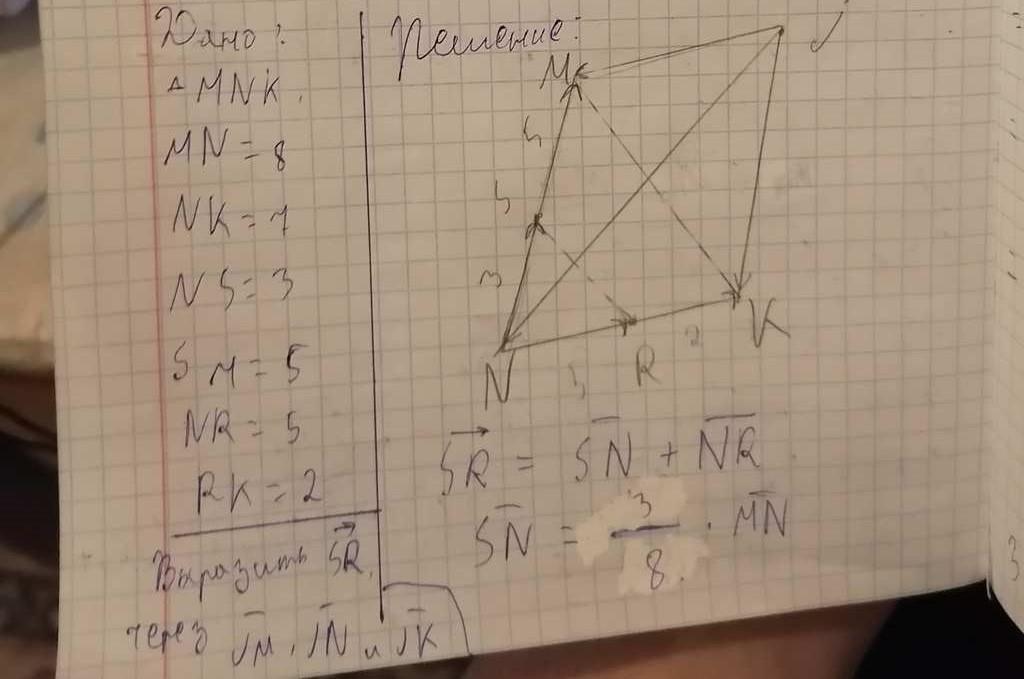 Дано:
△ MNK.
MN = 8
NK = 7
NS = 3
SM = 5
NR = 5
RK = 2
Выразить SR⃗,
через J̅M̅, J̅N̅ и J̅K̅
Решение:
M
J
5
S
3
N
5
R
2
K
SR⃗ = S̅N̅ + N̅R̅
S̅N̅ = 3/8 · M̅N̅